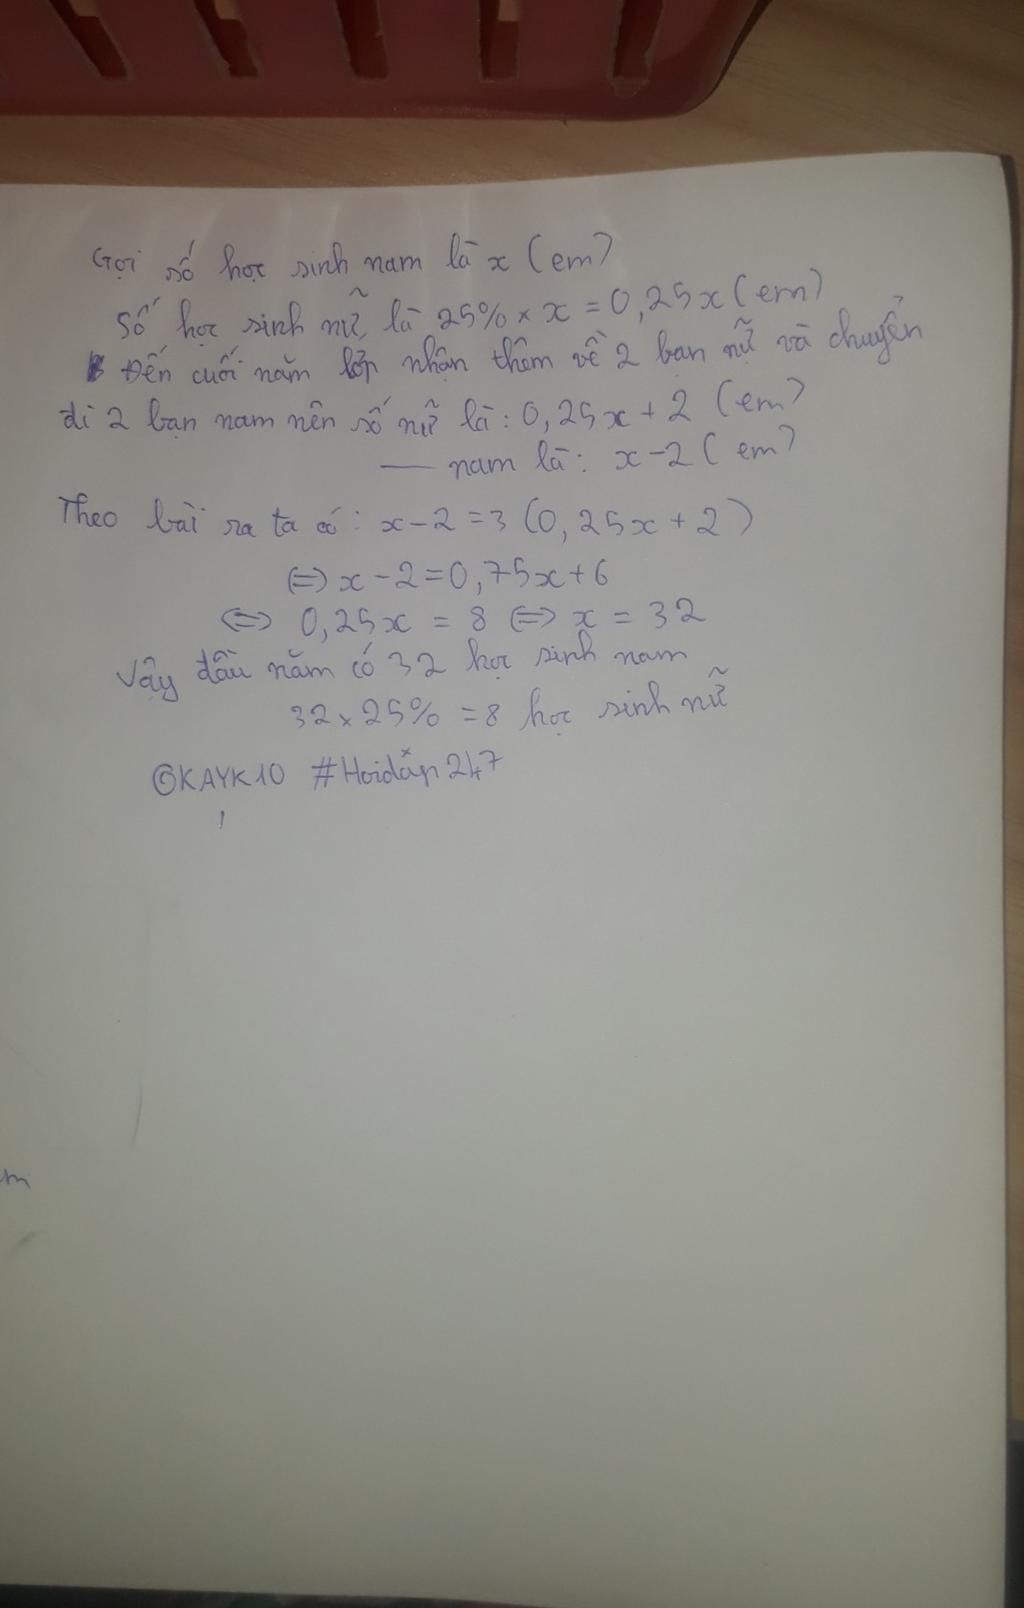 Gọi số học sinh nam là x (em)
Số học sinh nữ là 25% × x = 0,25x (em)
Đến cuối năm lớp nhận thêm về 2 bạn nữ và chuyển
đi 2 bạn nam nên số nữ là: 0,25x + 2 (em)
— nam là: x - 2 (em)
Theo bài ra ta có: x - 2 = 3 (0,25x + 2)
⇔ x - 2 = 0,75x + 6
⇔ 0,25x = 8 ⇔ x = 32
Vậy đầu năm có 32 học sinh nam
32 × 25% = 8 học sinh nữ
©KAYK10 #Hoidáp247
m